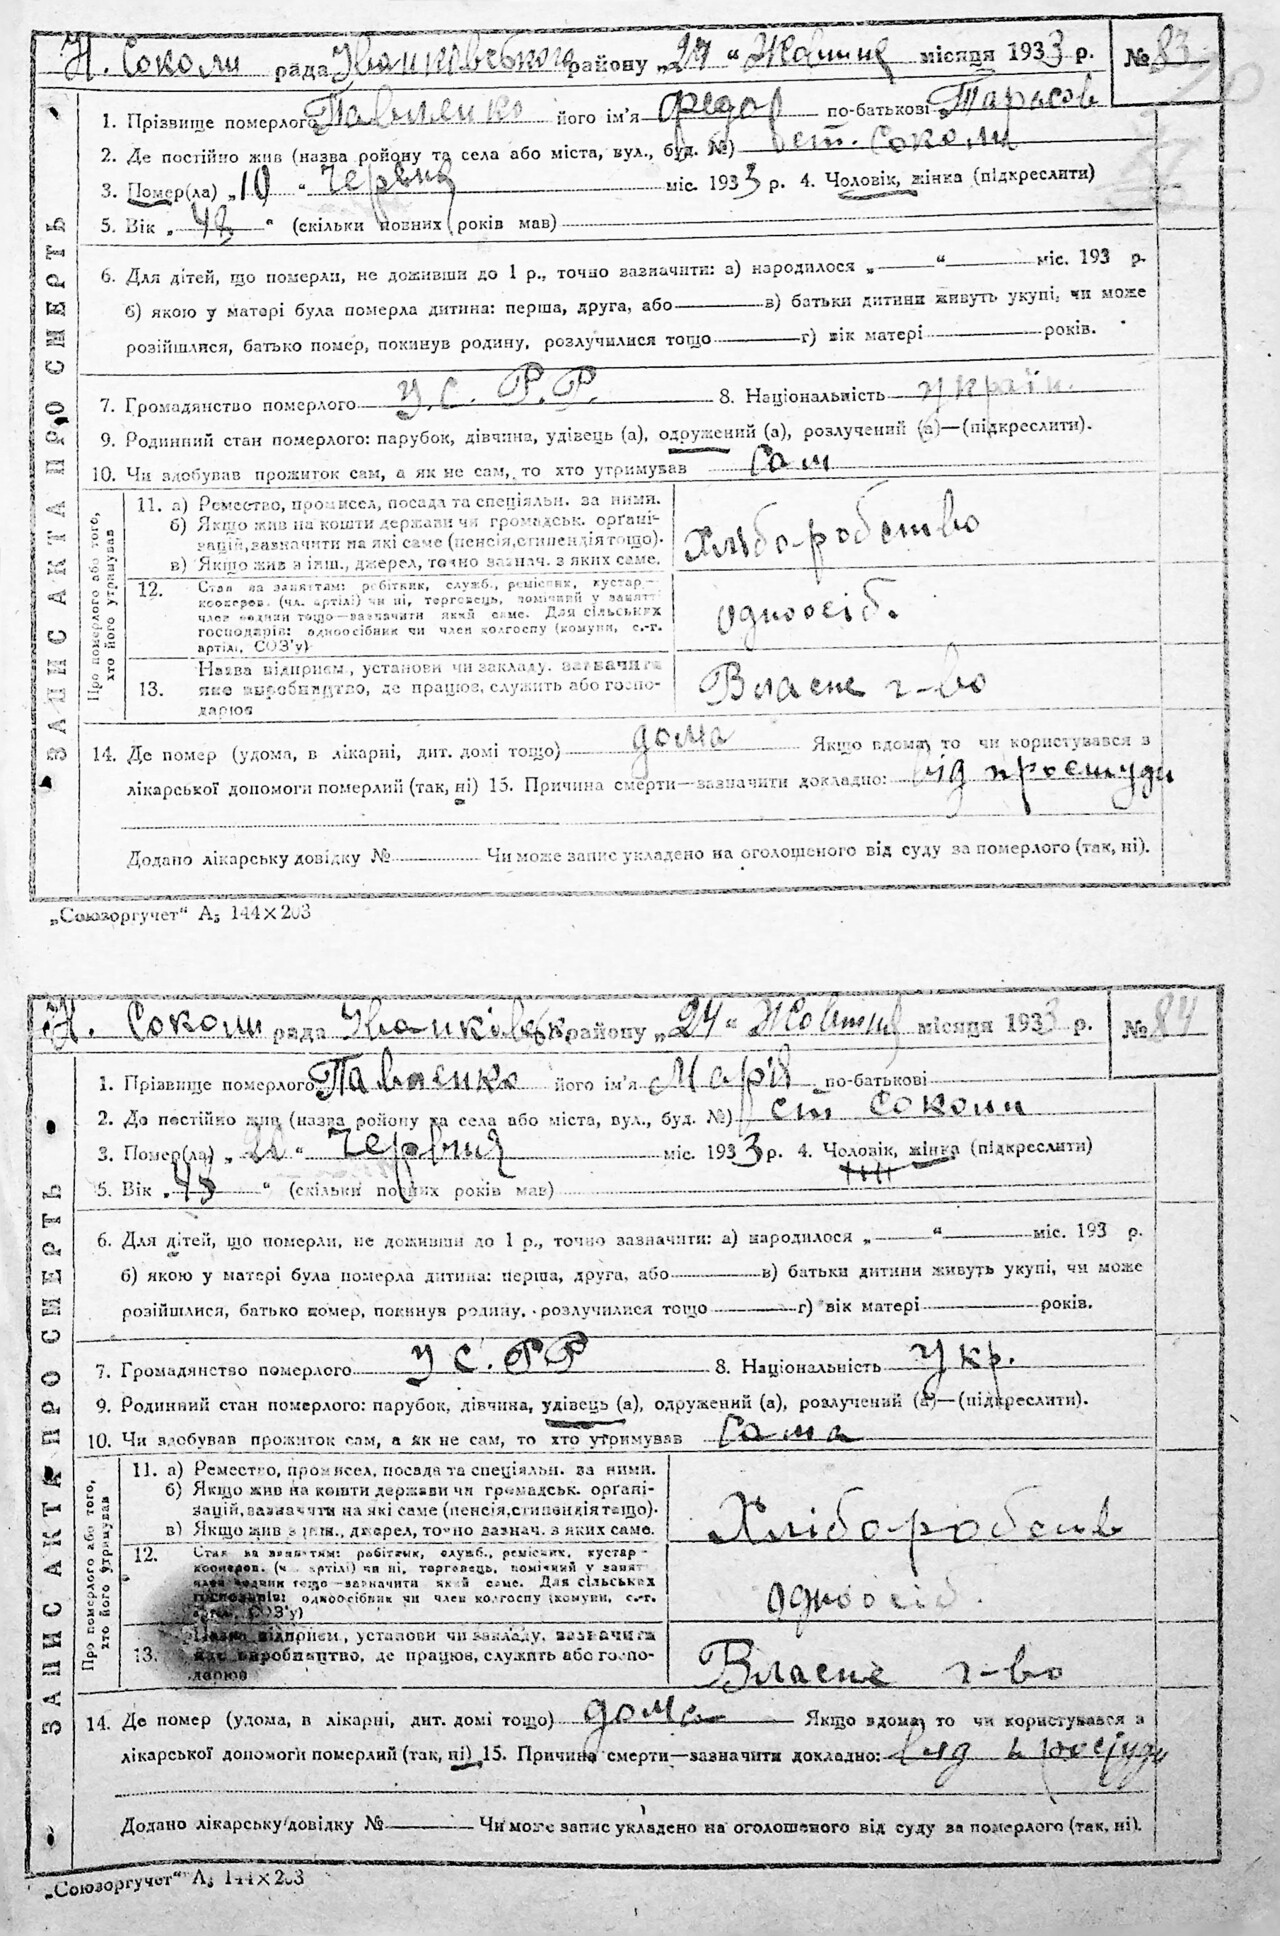 Н. Соколи рада Іванковського району „24“ Жовтня місяця 1933 р. № 83
1. Прізвище померлого Павленко його ім'я Федор по-батькові Тарасов
2. Де постійно жив (назва ройону та села або міста, вул., буд. №) ст. Соколи
3. Помер(ла) „10“ Червня міс. 1933 р. 4. Чоловік, жінка (підкреслити)
5. Вік „48“ (скільки повних років мав)
6. Для дітей, що померли, не доживши до 1 р., точно зазначити: а) народилося „ “ міс. 193 р.
б) якою у матері була померла дитина: перша, друга, або в) батьки дитини живуть укупі, чи може
розійшлися, батько помер, покинув родину, розлучилися тощо г) вік матері років.
7. Громадянство померлого У.С.Р.Р. 8. Національність україн.
9. Родинний стан померлого: парубок, дівчина, удівець (а), одружений (а), розлучений (а)—(підкреслити).
10. Чи здобував прожиток сам, а як не сам, то хто утримував Сам
ЗАПИС АКТА ПРО СМЕРТЬ
Про померлого або того, хто його утримував
11. а) Ремество, промисел, посада та спеціяльн. за ними.
б) Якщо жив на кошти держави чи громадськ. орґані-
зацій, зазначити на які саме (пенсія, стипендія тощо).
в) Якщо жив з інш., джерел, точно зазнач. з яких саме.
Хліборобство
12. Стан за заняттям: робітник, служб., ремісник, кустар-
кооперов. (чл. артілі) чи ні, торговець, помічний у занятт
член родини тощо—зазначити який саме. Для сільських
господарів: одноосібник чи член колгоспу (комуни, с.-г.
артілі, СОЗ'у)
одноосіб.
13. Назва підприєм., установи чи закладу, зазначити
яке виробництво, де працює, служить або госпо-
дарює
Власне г-во
14. Де помер (удома, в лікарні, дит. домі тощо) дома Якщо вдома, то чи користувався з
лікарської допомоги померлий (так, ні) 15. Причина смерти—зазначити докладно: від простуди
Додано лікарську довідку № Чи може запис укладено на оголошеного від суду за померлого (так, ні).
„Союзоргучет“ А₅ 144×203
Н. Соколи рада Іванківськ. району „24“ Жовтня місяця 1933 р. № 84
1. Прізвище померлого Павленко його ім'я Марія по-батькові
2. До постійно жив (назва ройону та села або міста, вул., буд. №) ст Соколи
3. Помер(ла) „ “ Червня міс. 1933 р. 4. Чоловік, жінка (підкреслити)
5. Вік „ “ (скільки повних років мав)
6. Для дітей, що померли, не доживши до 1 р., точно зазначити: а) народилося „ “ міс. 193 р.
б) якою у матері була померла дитина: перша, друга, або в) батьки дитини живуть укупі, чи може
розійшлися, батько помер, покинув родину, розлучилися тощо г) вік матері років.
7. Громадянство померлого УС.РР 8. Національність Укр.
9. Родинний стан померлого: парубок, дівчина, удівець (а), одружений (а), розлучений (а)—(підкреслити).
10. Чи здобував прожиток сам, а як не сам, то хто утримував Сама
ЗАПИС АКТА ПРО СМЕРТЬ
Про померлого або того, хто його утримував
11. а) Ремество, промисел, посада та спеціяльн. за ними.
б) Якщо жив на кошти держави чи громадськ. орґані-
зацій, зазначити на які саме (пенсія, стипендія тощо).
в) Якщо жив з інш., джерел, точно зазнач. з яких саме.
Хліборобств
12. Стан за заняттям: робітник, служб., ремісник, кустар-
кооперов. (чл. артілі) чи ні, торговець, помічний у занятт
член родини тощо—зазначити який саме. Для сільських
господарів: одноосібник чи член колгоспу (комуни, с.-г.
артілі, СОЗ'у)
одноосіб.
13. Назва підприєм., установи чи закладу, зазначити
яке виробництво, де працює, служить або госпо-
дарює
Власне г-во
14. Де помер (удома, в лікарні, дит. домі тощо) дома Якщо вдома, то чи користувався з
лікарської допомоги померлий (так, ні) 15. Причина смерти—зазначити докладно: від простуди
Додано лікарську довідку № Чи може запис укладено на оголошеного від суду за померлого (так, ні).
„Союзоргучет“ А₅ 144×203